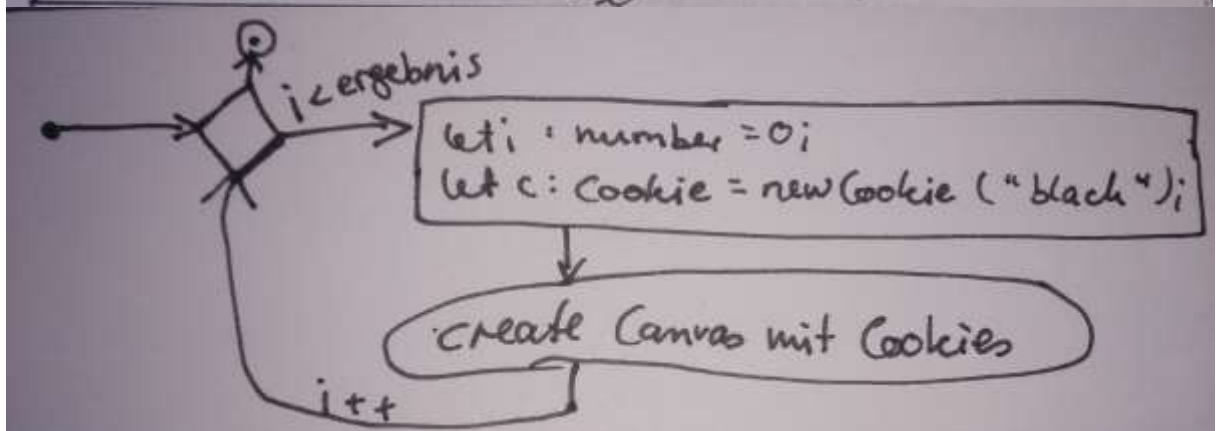 i < ergebnis
let i : number = 0;
let c : Cookie = new Cookie ("black");
create Canvas mit Cookies
i++